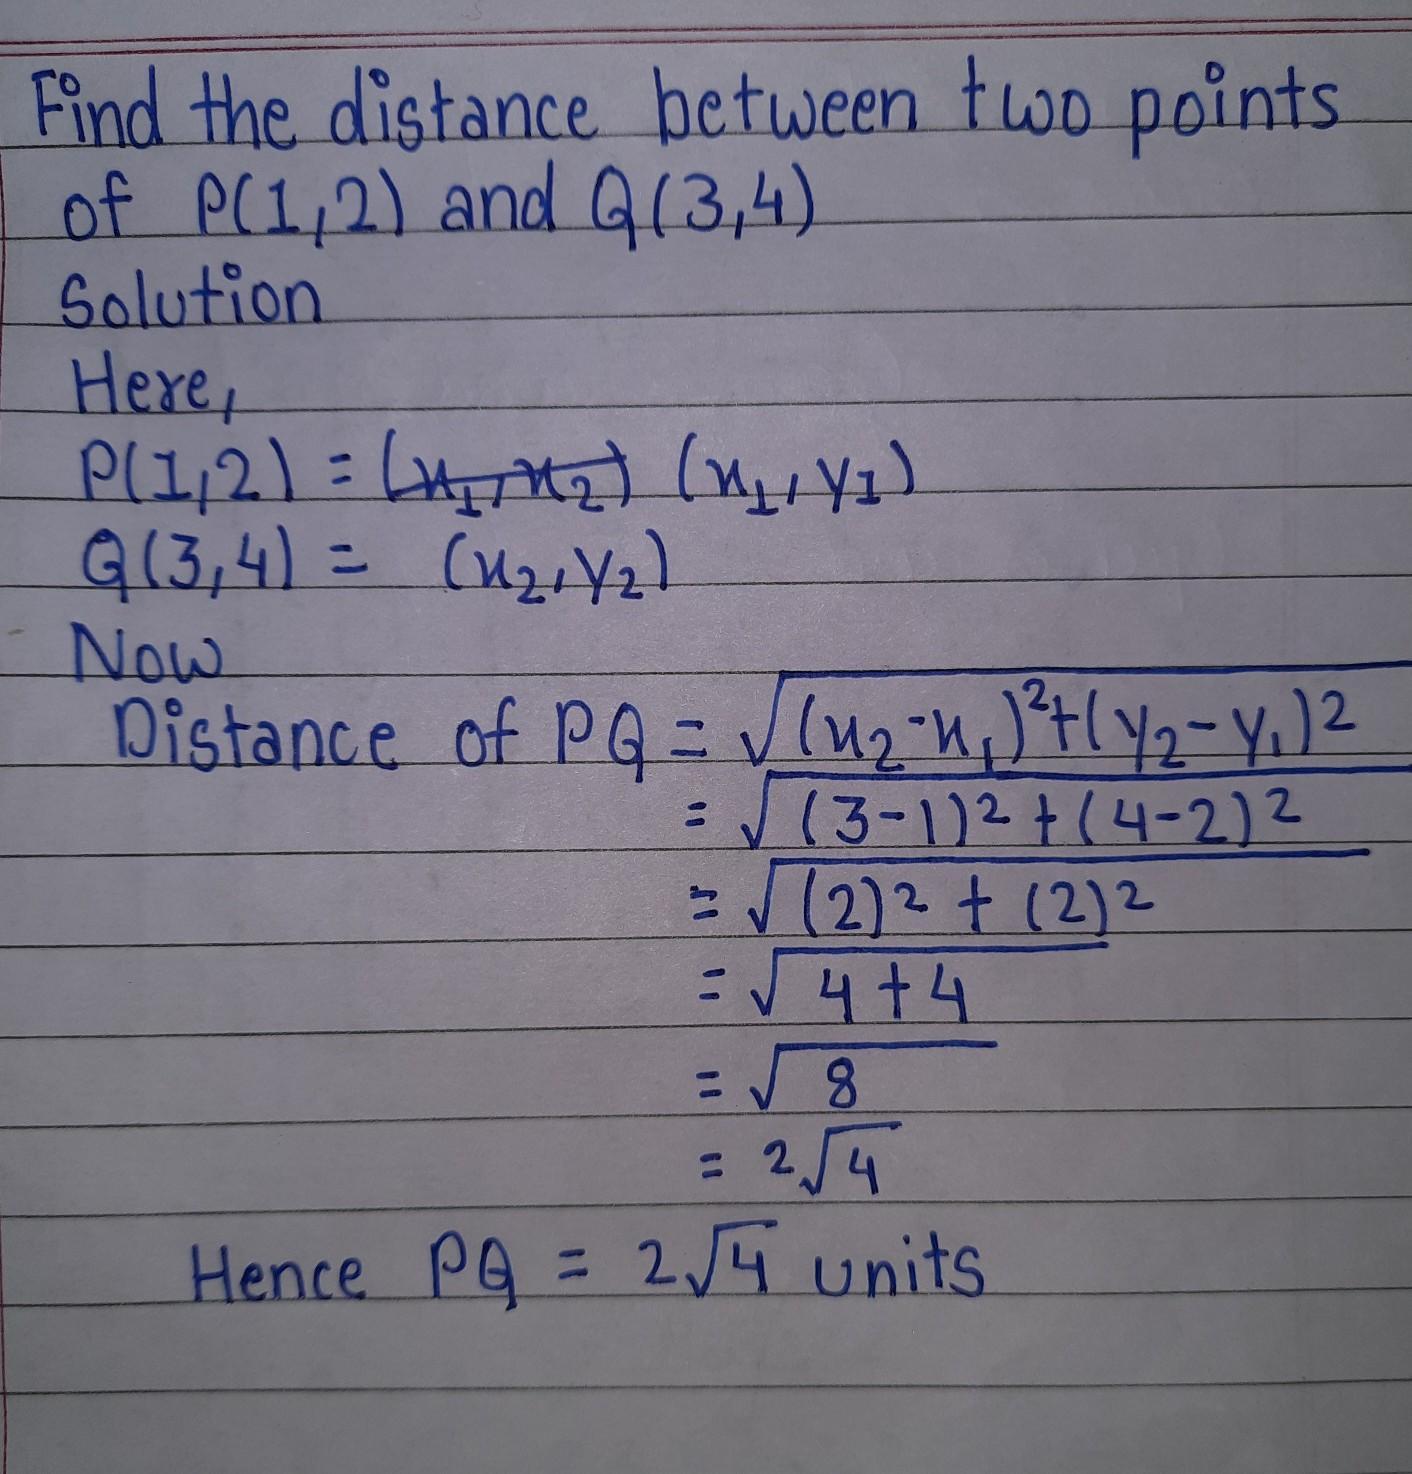 Find the distance between two points
of P(1,2) and Q(3,4)
Solution
Here,
P(1,2) = (x₁, x₂) (x₁, y₁)
Q(3,4) = (x₂, y₂)
Now
Distance of PQ = √(x₂-x₁)²+(y₂-y₁)2
= √(3-1)2 + (4-2)2
= √(2)2 + (2)2
= √4+4
= √8
= 2√4
Hence PQ = 2√4 units